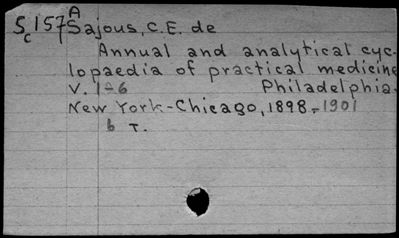 A
Sc157 Sajous, C.E. de
Annual and analytical cyc-
lopaedia of practical medicine
V. 1-6 Philadelphia-
New York-Chicago, 1898-1901
6 T.